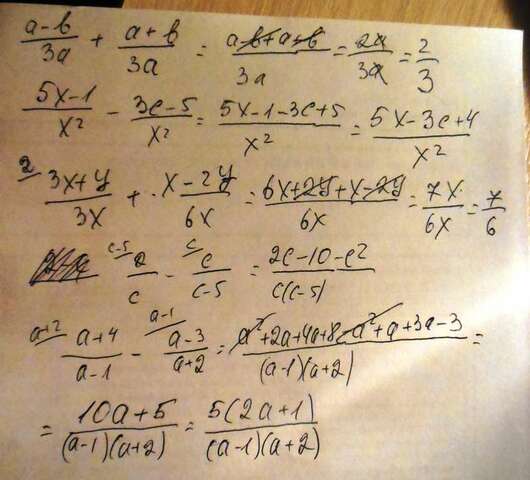 (a-b)/3a + (a+b)/3a = (a-b+a+b)/3a = 2a/3a = 2/3
(5x-1)/x² - (3c-5)/x² = (5x-1-3c+5)/x² = (5x-3c+4)/x²
2/ (3x+y)/3x + (x-2y)/6x = (6x+2y+x-2y)/6x = 7x/6x = 7/6
c-5/ 2/c - c/ c/(c-5) = (2c-10-c²)/c(c-5)
a+2/ (a+4)/(a-1) - a-1/ (a-3)/(a+2) = (a²+2a+4a+8-a²+a+3a-3)/(a-1)(a+2) =
= (10a+5)/(a-1)(a+2) = 5(2a+1)/(a-1)(a+2)